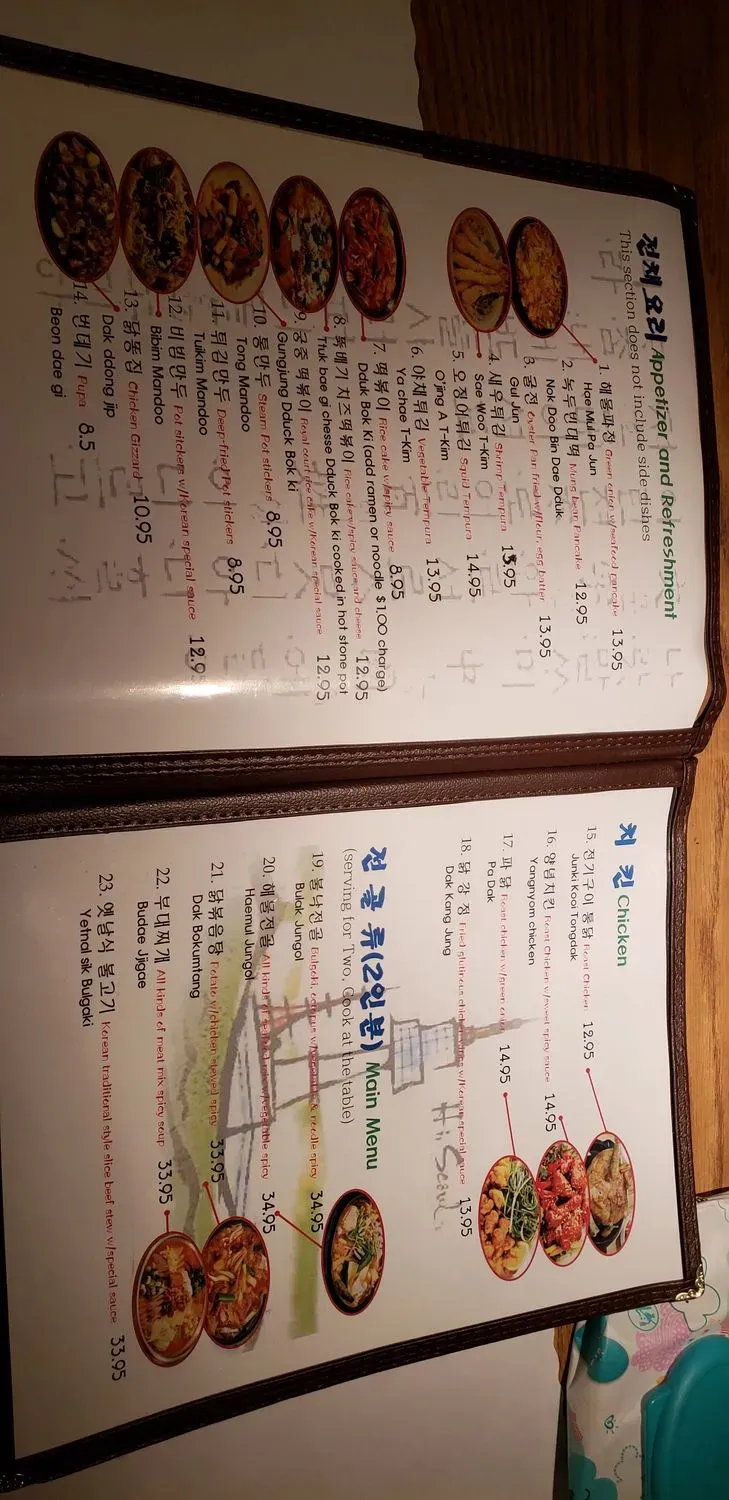 전체 요리 Appetizer and Refreshment
This section does not include side dishes
1. 해물파전 Green onion w/seafood pancake 13.95
Hae Mul Pa Jun
2. 녹두빈대떡 Mung bean Pancake 12.95
Nok Doo Bin Dae Dduk
3. 굴전 Oyster Pan fried w/flour, egg batter 13.95
Gul Jun
4. 새우튀김 Shrimp Tempura 13.95
Sae Woo T-Kim
5. 오징어튀김 Squid Tempura 14.95
O'jing A T-Kim
6. 야채튀김 Vegetable Tempura 13.95
Ya chae T-Kim
7. 떡볶이 Rice cake w/spicy sauce 8.95
Dduk Bok Ki (add ramen or noodle $1,00 charge)
8. 뚝배기 치즈떡볶이 Rice cake w/spicy sauce and cheese 12.95
Ttuk bae gi chesse Dduck Bok ki cooked in hot stone pot
9. 궁중 떡볶이 Royal court rice cake w/Korean special sauce 12.95
Gungjung Dduck Bok ki
10. 통만두 Steam Pot stickers 8.95
Tong Mandoo
11. 튀김만두 Deep-fried Pot stickers 8.95
Tuikim Mandoo
12. 비빔만두 Pot stickers w/Korean special sauce 12.9
Bibim Mandoo
13. 닭똥집 Chicken Gizzard 10.95
Dak ddong jip
14. 번대기 Pupa 8.5
Beon dae gi
치킨 Chicken
15. 전기구이 통닭 Roast Chicken 12.95
Junki Kooi Tongdak
16. 양념치킨 Roast Chicken w/sweet spicy sauce 14.95
Yangnyom chicken
17. 파닭 Roast chicken w/green onion 14.95
Pa Dak
18. 닭 강 정 Fried glutinous chicken w/Korean special sauce 13.95
Dak Kang Jung
Hi Seoul
전 골 류(2인분) Main Menu
(serving for Two, Cook at the table)
19. 불낙전골 Bulgoki, octopus w/vegetable & noodle spicy 34.95
Bulak Jungol
20. 해물전골 All kinds of seafood mix w/vegetable spicy 34.95
Haemul Jungol
21. 닭볶음탕 Potato w/chicken stewed spicy 33.95
Dak Bokumtang
22. 부대찌개 All kinds of meat mix spicy soup 33.95
Budae Jjigae
23. 옛날식 불고기 Korean traditional style slice beef stew w/special sauce 33.95
Yetnal sik Bulgoki